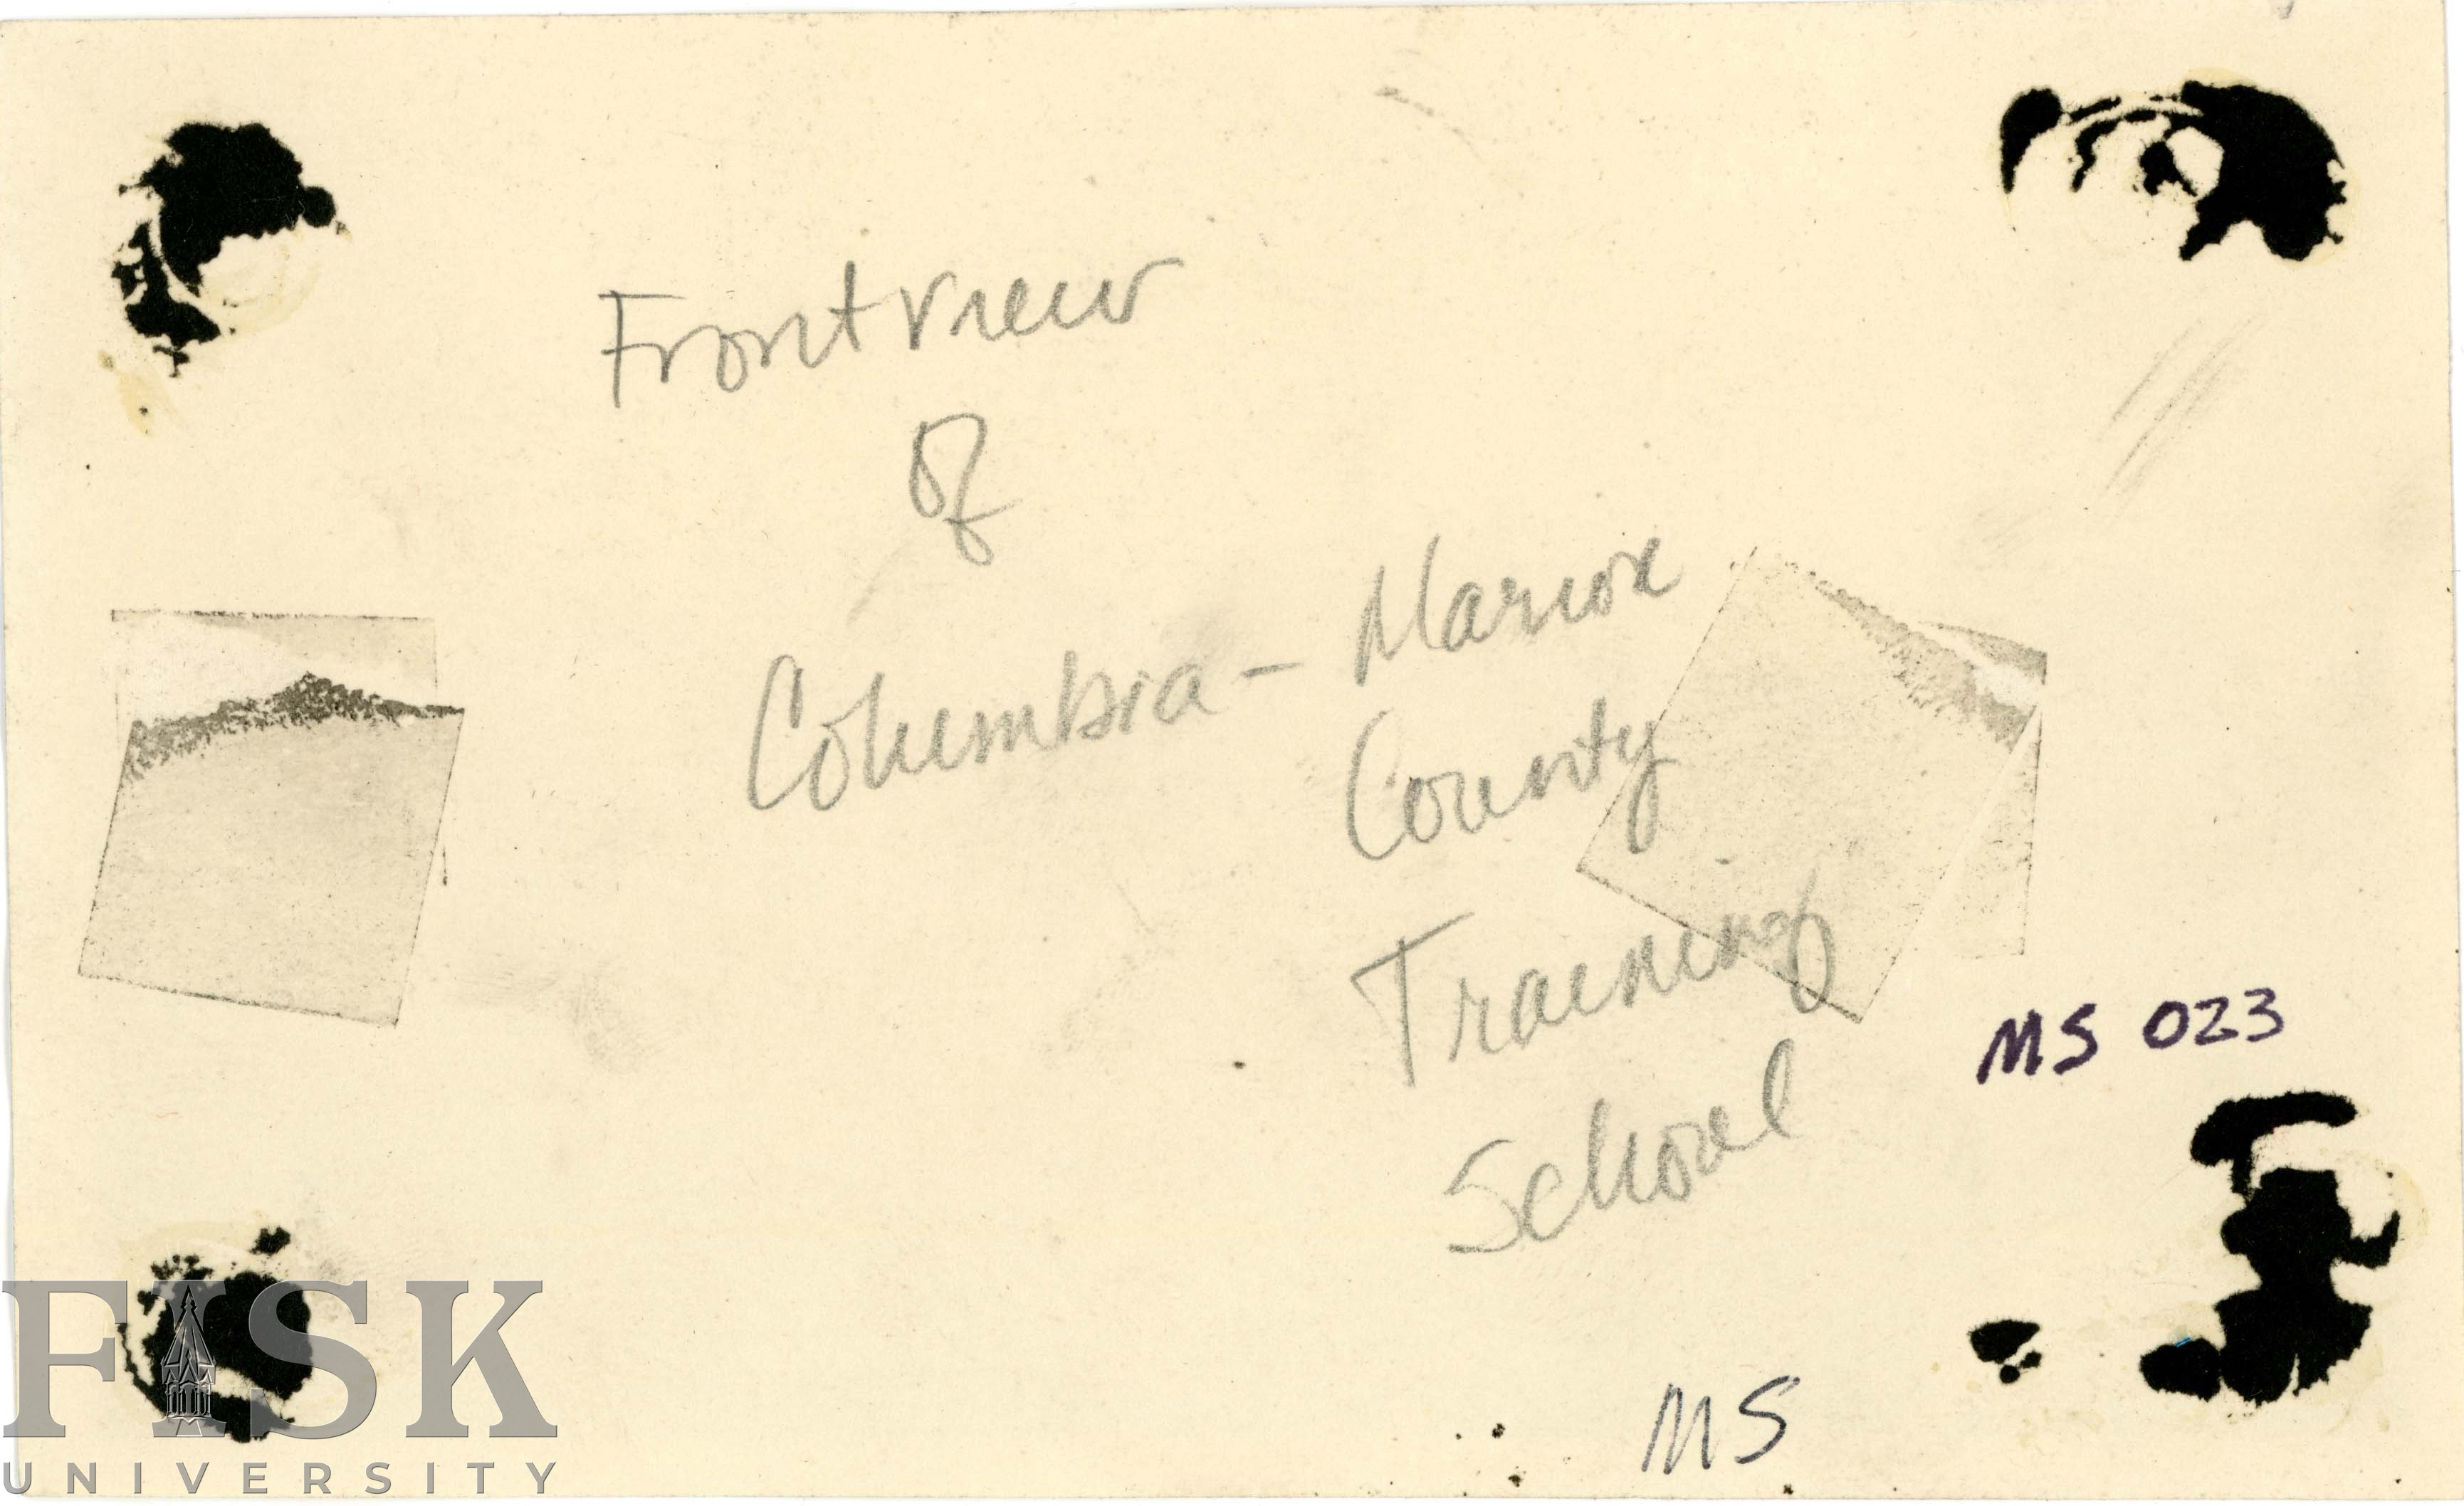 Front view
of
Columbia - Marion
County
Training
School
MS 023
MS
FISK
UNIVERSITY